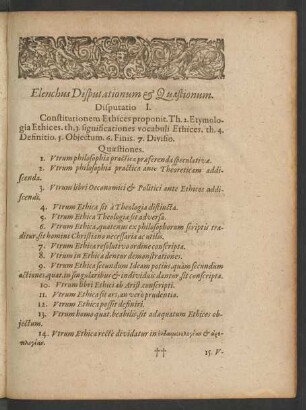 Elenchus Disputationum & Quæstionum.
Disputatio I.
Constitutionem Ethices proponit. Th. 2. Etymolo-
gia Ethices. th. 3. significationes vocabuli Ethices. th. 4.
Definitio. 5. Obiectum. 6. Finis. 7. Divisio.
Quæstiones.
1. Vtrum philosophia practica præferenda speculativæ.
2. Vtrum philosophia practica ante Theoreticam addi-
scenda.
3. Vtrum libri Oeconomici & Politici ante Ethicos addi-
scendi.
4. Vtrum Ethica sit à Theologia distincta.
5. Vtrum Ethica Theologiæ sit adversa.
6. Vtrum Ethica, quatenus ex philosophorum scriptis tra-
ditur, sit homini Christiano necessaria ac utilis.
7. Vtrum Ethica resolutivo ordine conscripta.
8. Vtrum in Ethica dentur demonstrationes.
9. Vtrum Ethica secundum Ideam potius, quàm secundum
actiones, quæ in singularibus & individuis dantur sit conscripta.
10. Vtrum libri Ethici ab Aristot. conscripti.
11. Vtrum Ethica sit ars, an verò prudentia.
12. Vtrum Ethica possit definiri.
13. Vtrum homo quat. beabilis, sit adæquatum Ethices ob-
jectum.
14. Vtrum Ethica rectè dividatur in εὐδαιμονολογίαν & ἀρε-
τολογίαν.
†† 15. V-